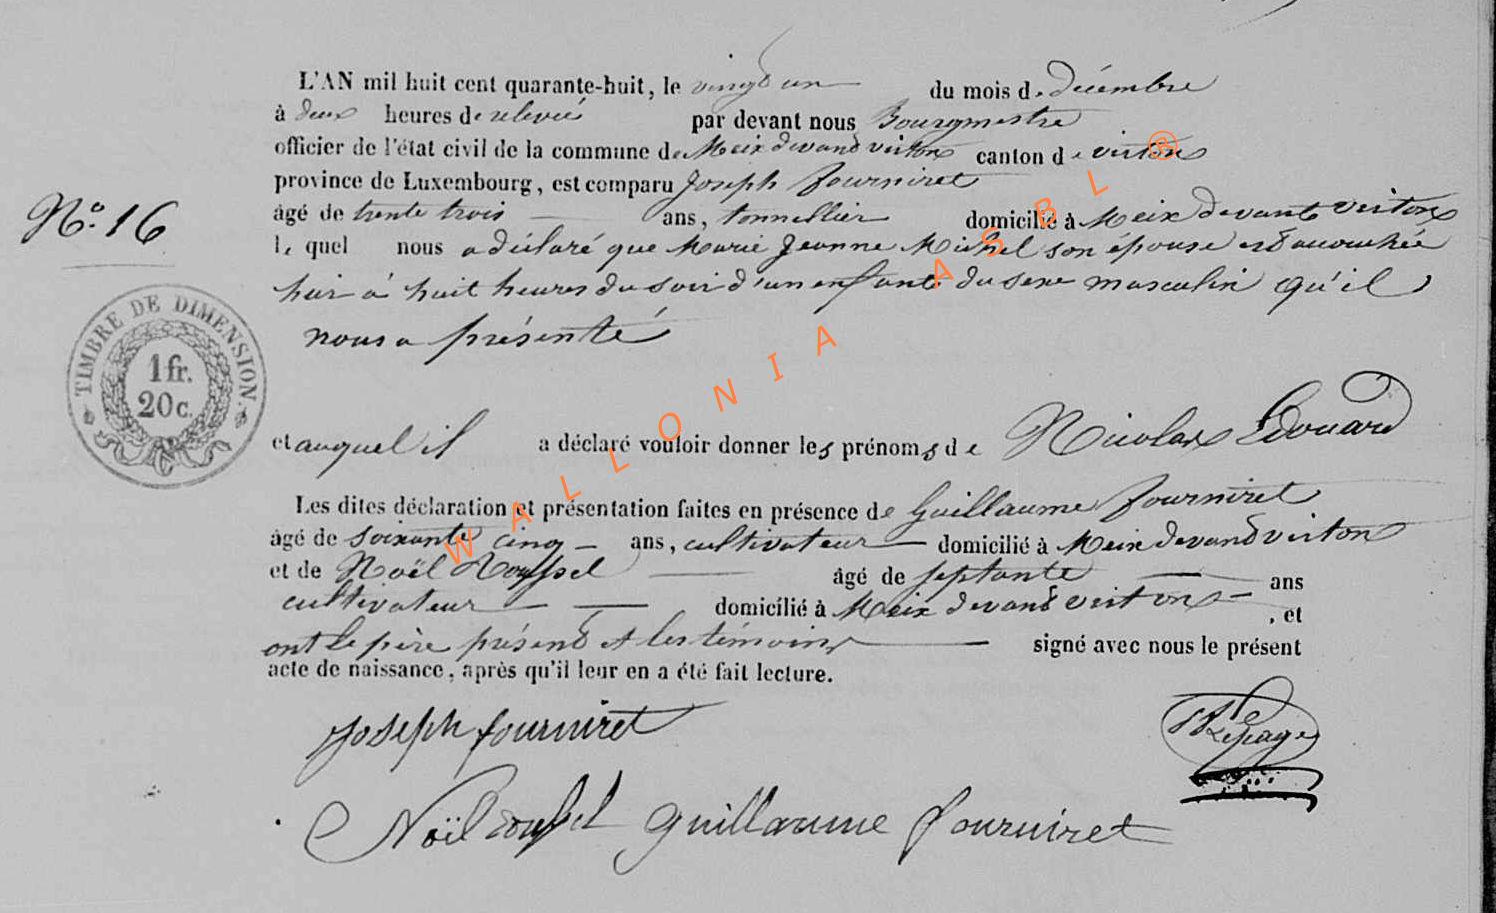 L'AN mil huit cent quarante-huit, le vingt un du mois de décembre
à deux heures de relevée par devant nous Bourgmestre
officier de l'état civil de la commune de Meix devand virton canton de virton
province de Luxembourg, est comparu Joseph fourniret
âgé de trente trois ans, tonnellier domicilié à Meix devant virton
le quel nous a déclaré que Marie Jeanne Michel son épouse est accouchée
hier à huit heures du soir d'un enfant du sexe masculin qu'il
nous a présenté
N° 16
TIMBRE DE DIMENSION
1 fr.
20 c.
et auquel il a déclaré vouloir donner les prénoms de Nicolas Edouard
Les dites déclaration et présentation faites en présence de Guillaume fourniret
âgé de soixante cinq ans, cultivateur domicilié à Meix devand virton
et de Noël Roussel âgé de septante ans
cultivateur domicilié à Meix devand virton, et
ont le père présend et les témoins signé avec nous le présent
acte de naissance, après qu'il leur en a été fait lecture.
Joseph fourniret
Lepage
Noël roussel guillaume fourniret
WALLONIA ASBL ®